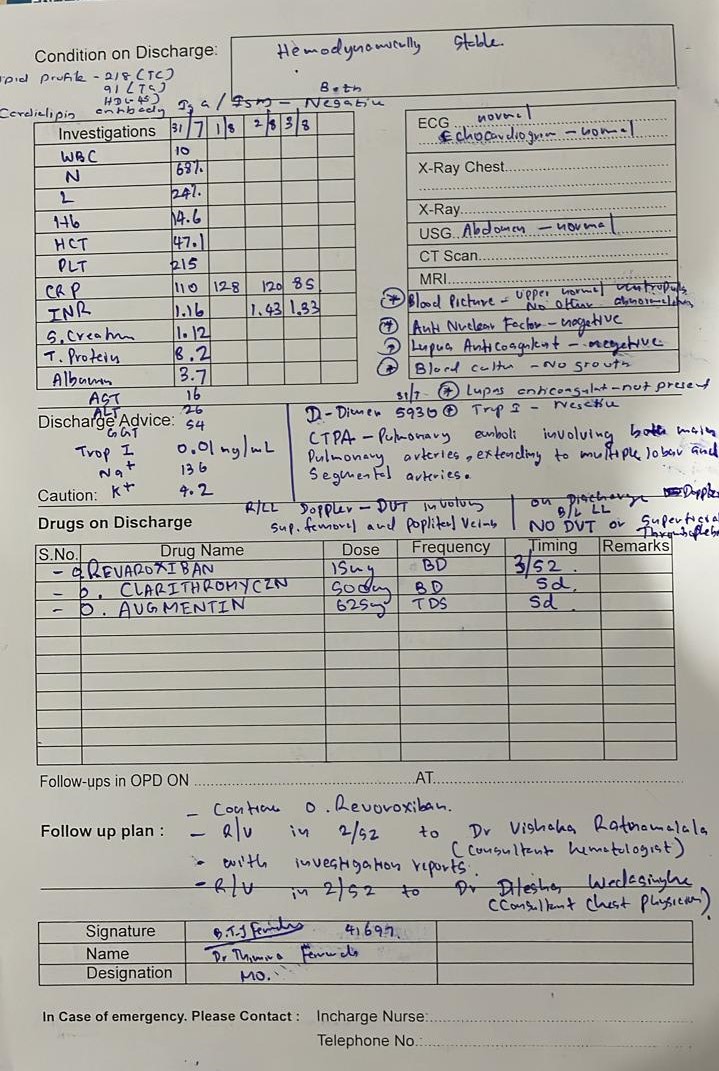 Condition on Discharge: Hemodynamically Stable.
Lipid profile - 218 (TC)
91 (TG)
HDL-45)
Cardiolipin antibody IgG / IgM - Both Negative
Investigations 31/7 1/8 2/8 3/8
WBC 10
N 68%
L 24%
Hb 14.6
HCT 47.1
PLT 215
CRP 110 128 120 85
INR 1.16 1.43 1.33
S. Creatin 1.12
T. Protein 8.2
Albumin 3.7
AST 16
ALT 26
GGT 54
ECG normal
Echocardiogram - normal
X-Ray Chest
X-Ray
USG Abdomen - normal
CT Scan
MRI
Blood Picture - upper normal
No other abnormalities
Anti Nuclear Factor - negative
Lupus Anticoagulant - negative
Blood cultu - No growth
31/7 Lupus anticoagulat - not present
Discharge Advice:
Trop I 0.01 ng/mL
Na+ 136
K+ 4.2
Caution:
D-Dimer 5930 Trop I -
CTPA - Pulmonary emboli involving both main
Pulmonary arteries, extending to multiple lobar and
Segmental arteries.
R/LL Doppler - DVT involving
sup. femoral and popliteal veins
on Discharge Doppler
B/L LL
NO DVT or Superficial
Drugs on Discharge
S.No. Drug Name Dose Frequency Timing Remarks
- o REVAROXIBAN 15mg BD 3/52.
- o. CLARITHROMYCIN 500mg BD 5d.
- o. AUGMENTIN 625mg TDS 5d.
Follow-ups in OPD ON AT
Follow up plan :
- Continue o. Revoroxiban.
- R/V in 2/52 to Dr Vishaka Ratnamalala
(consultant hematologist)
- with investigation reports.
- R/V in 2/52 to Dr Dilesha Wadasinghe
(Consultant Chest Physician)
Signature 41697.
Name Dr Fernando
Designation MO.
In Case of emergency. Please Contact : Incharge Nurse:
Telephone No.: